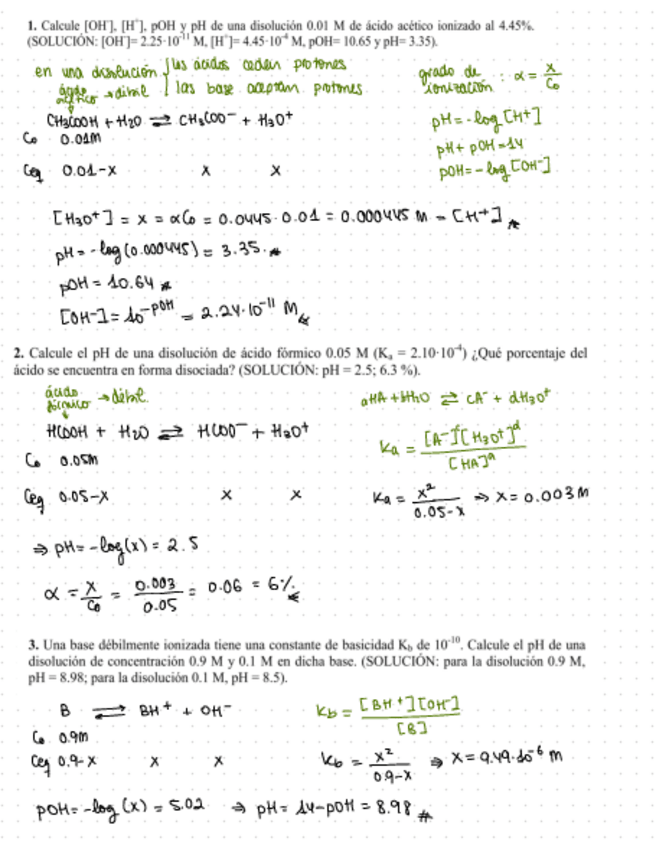 1. Calcule [OH⁻], [H⁺], pOH y pH de una disolución 0.01 M de ácido acético ionizado al 4.45%.
(SOLUCIÓN: [OH⁻]= 2.25·10⁻¹¹ M, [H⁺]= 4.45·10⁻⁴ M, pOH= 10.65 y pH= 3.35).
en una disolución { los ácidos ceden protones
las base aceptan protones
ácido acético → débil
grado de ionización : α = x/C₀
CH₃COOH + H₂O ⇌ CH₃COO⁻ + H₃O⁺
pH = -log [H⁺]
C₀ 0.01M
pH + pOH = 14
Ceq 0.01-x x x
pOH = -log [OH⁻]
[H₃O⁺] = x = αC₀ = 0.0445 · 0.01 = 0.000445 M = [H⁺]
pH = -log (0.000445) = 3.35.
pOH = 10.64
[OH⁻] = 10^-pOH = 2.24·10⁻¹¹ M
2. Calcule el pH de una disolución de ácido fórmico 0.05 M (Kₐ = 2.10·10⁻⁴) ¿Qué porcentaje del
ácido se encuentra en forma disociada? (SOLUCIÓN: pH = 2.5; 6.3 %).
ácido fórmico → débil.
aHA + bH₂O ⇌ cA⁻ + dH₃O⁺
HCOOH + H₂O ⇌ HCOO⁻ + H₃O⁺
Ka = [A⁻]ᶜ[H₃O⁺]ᵈ / [HA]ᵃ
C₀ 0.05M
Ceq 0.05-x x x
Ka = x² / 0.05-x ⇒ x = 0.003M
⇒ pH = -log(x) = 2.5
α = x/C₀ = 0.003/0.05 = 0.06 = 6%
3. Una base débilmente ionizada tiene una constante de basicidad K_b de 10⁻¹⁰. Calcule el pH de una
disolución de concentración 0.9 M y 0.1 M en dicha base. (SOLUCIÓN: para la disolución 0.9 M,
pH = 8.98; para la disolución 0.1 M, pH = 8.5).
B ⇌ BH⁺ + OH⁻
Kb = [BH⁺][OH⁻] / [B]
C₀ 0.9M
Ceq 0.9-x x x
Kb = x² / 0.9-x ⇒ x = 9.49·10⁻⁶ M
pOH = -log (x) = 5.02 ⇒ pH = 14-pOH = 8.98